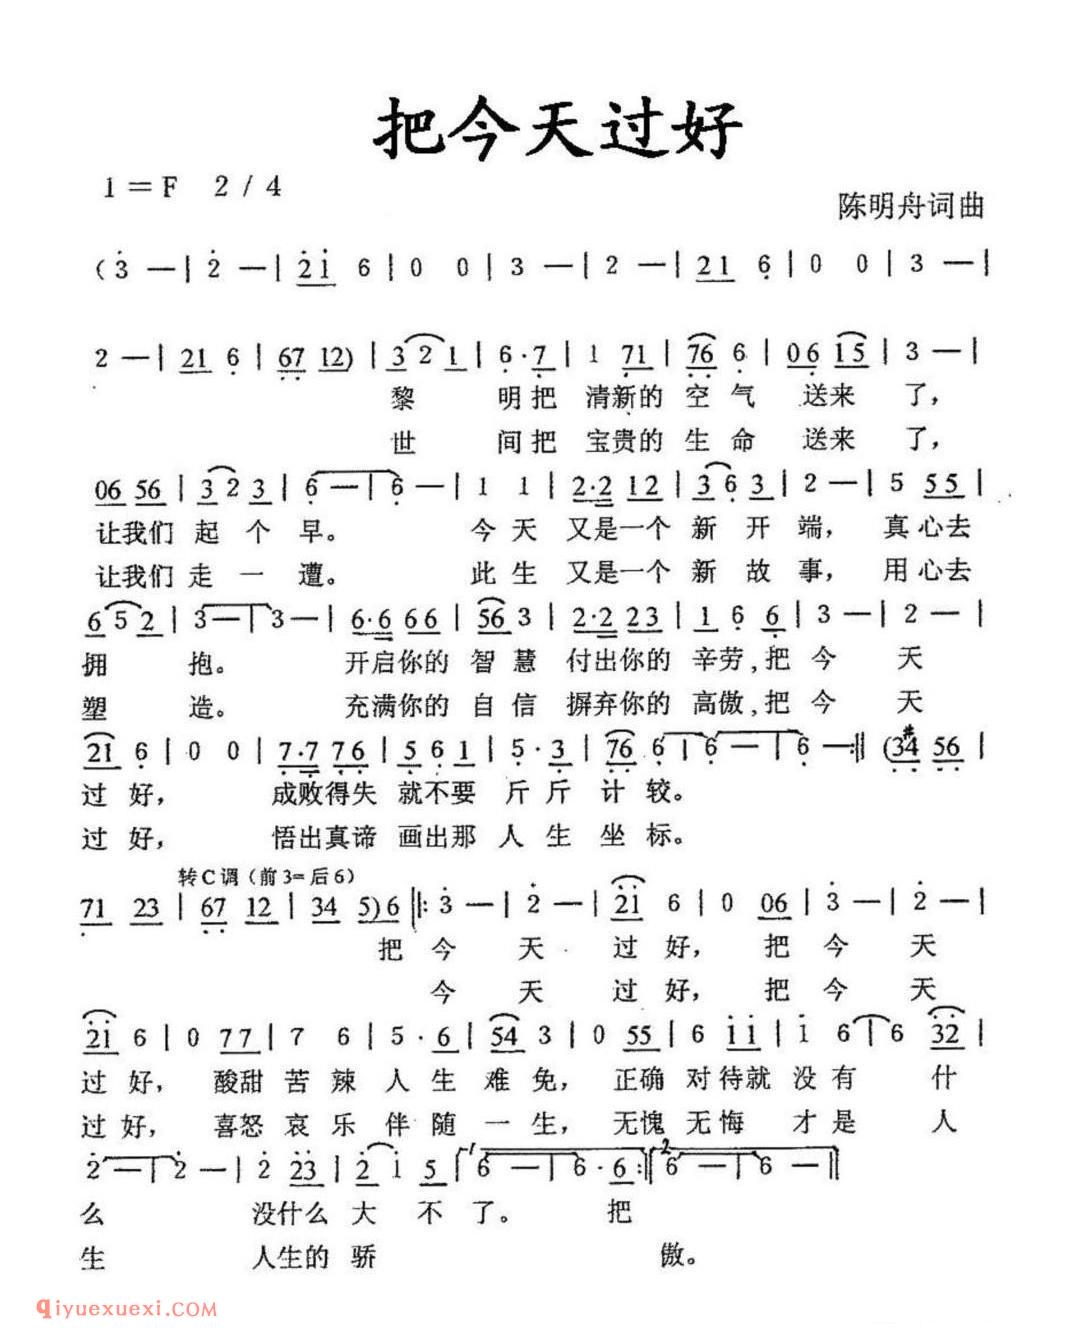 把今天过好
1=F 2/4
陈明舟词曲
(3 — | 2 — | 21 6 | 0 0 | 3 — | 2 — | 21 6 | 0 0 | 3 — |
2 — | 21 6 | 67 12) | 3 2 1 | 6·7 | 1 71 | 76 6 | 06 15 | 3 — |
黎 明把 清新的 空气 送来 了,
世 间把 宝贵的 生命 送来 了,
06 56 | 3 2 3 | 6 — | 6 — | 1 1 | 2·2 12 | 3 6 3 | 2 — | 5 55 |
让我们 起 个 早。 今天 又是一个 新 开 端, 真心去
让我们 走 一 遭。 此生 又是一个 新 故 事, 用心去
6 5 2 | 3 — | 3 — | 6·6 66 | 56 3 | 2·2 23 | 1 6 6 | 3 — | 2 — |
拥 抱。 开启你的 智慧 付出你的 辛劳,把 今 天
塑 造。 充满你的 自信 摒弃你的 高傲,把 今 天
21 6 | 0 0 | 7·7 76 | 5 6 1 | 5·3 | 76 6 | 6 — | 6 — :|| (3#4 56 |
过 好, 成败得失 就不要 斤斤 计 较。
过 好, 悟出真谛 画出那 人生 坐 标。
转C调(前3=后6)
71 23 | 67 12 | 34 5)6 ||: 3 — | 2 — | 21 6 | 0 06 | 3 — | 2 — |
把 今 天 过 好, 把 今 天
今 天 过 好, 把 今 天
21 6 | 0 77 | 7 6 | 5·6 | 54 3 | 0 55 | 6 11 | 1 6 | 6 32 |
过 好, 酸甜 苦辣 人生 难免, 正确 对待就 没有 什
过 好, 喜怒 哀乐 伴随 一生, 无愧 无悔 才是 人
2 — | 2 — | 2 23 | 2 1 5 | 1. 6 — | 6·6 :|| 2. 6 — | 6 — ||
么 没什么 大 不 了。 把
生 人生的 骄 傲。
qiyuexuexi.COM